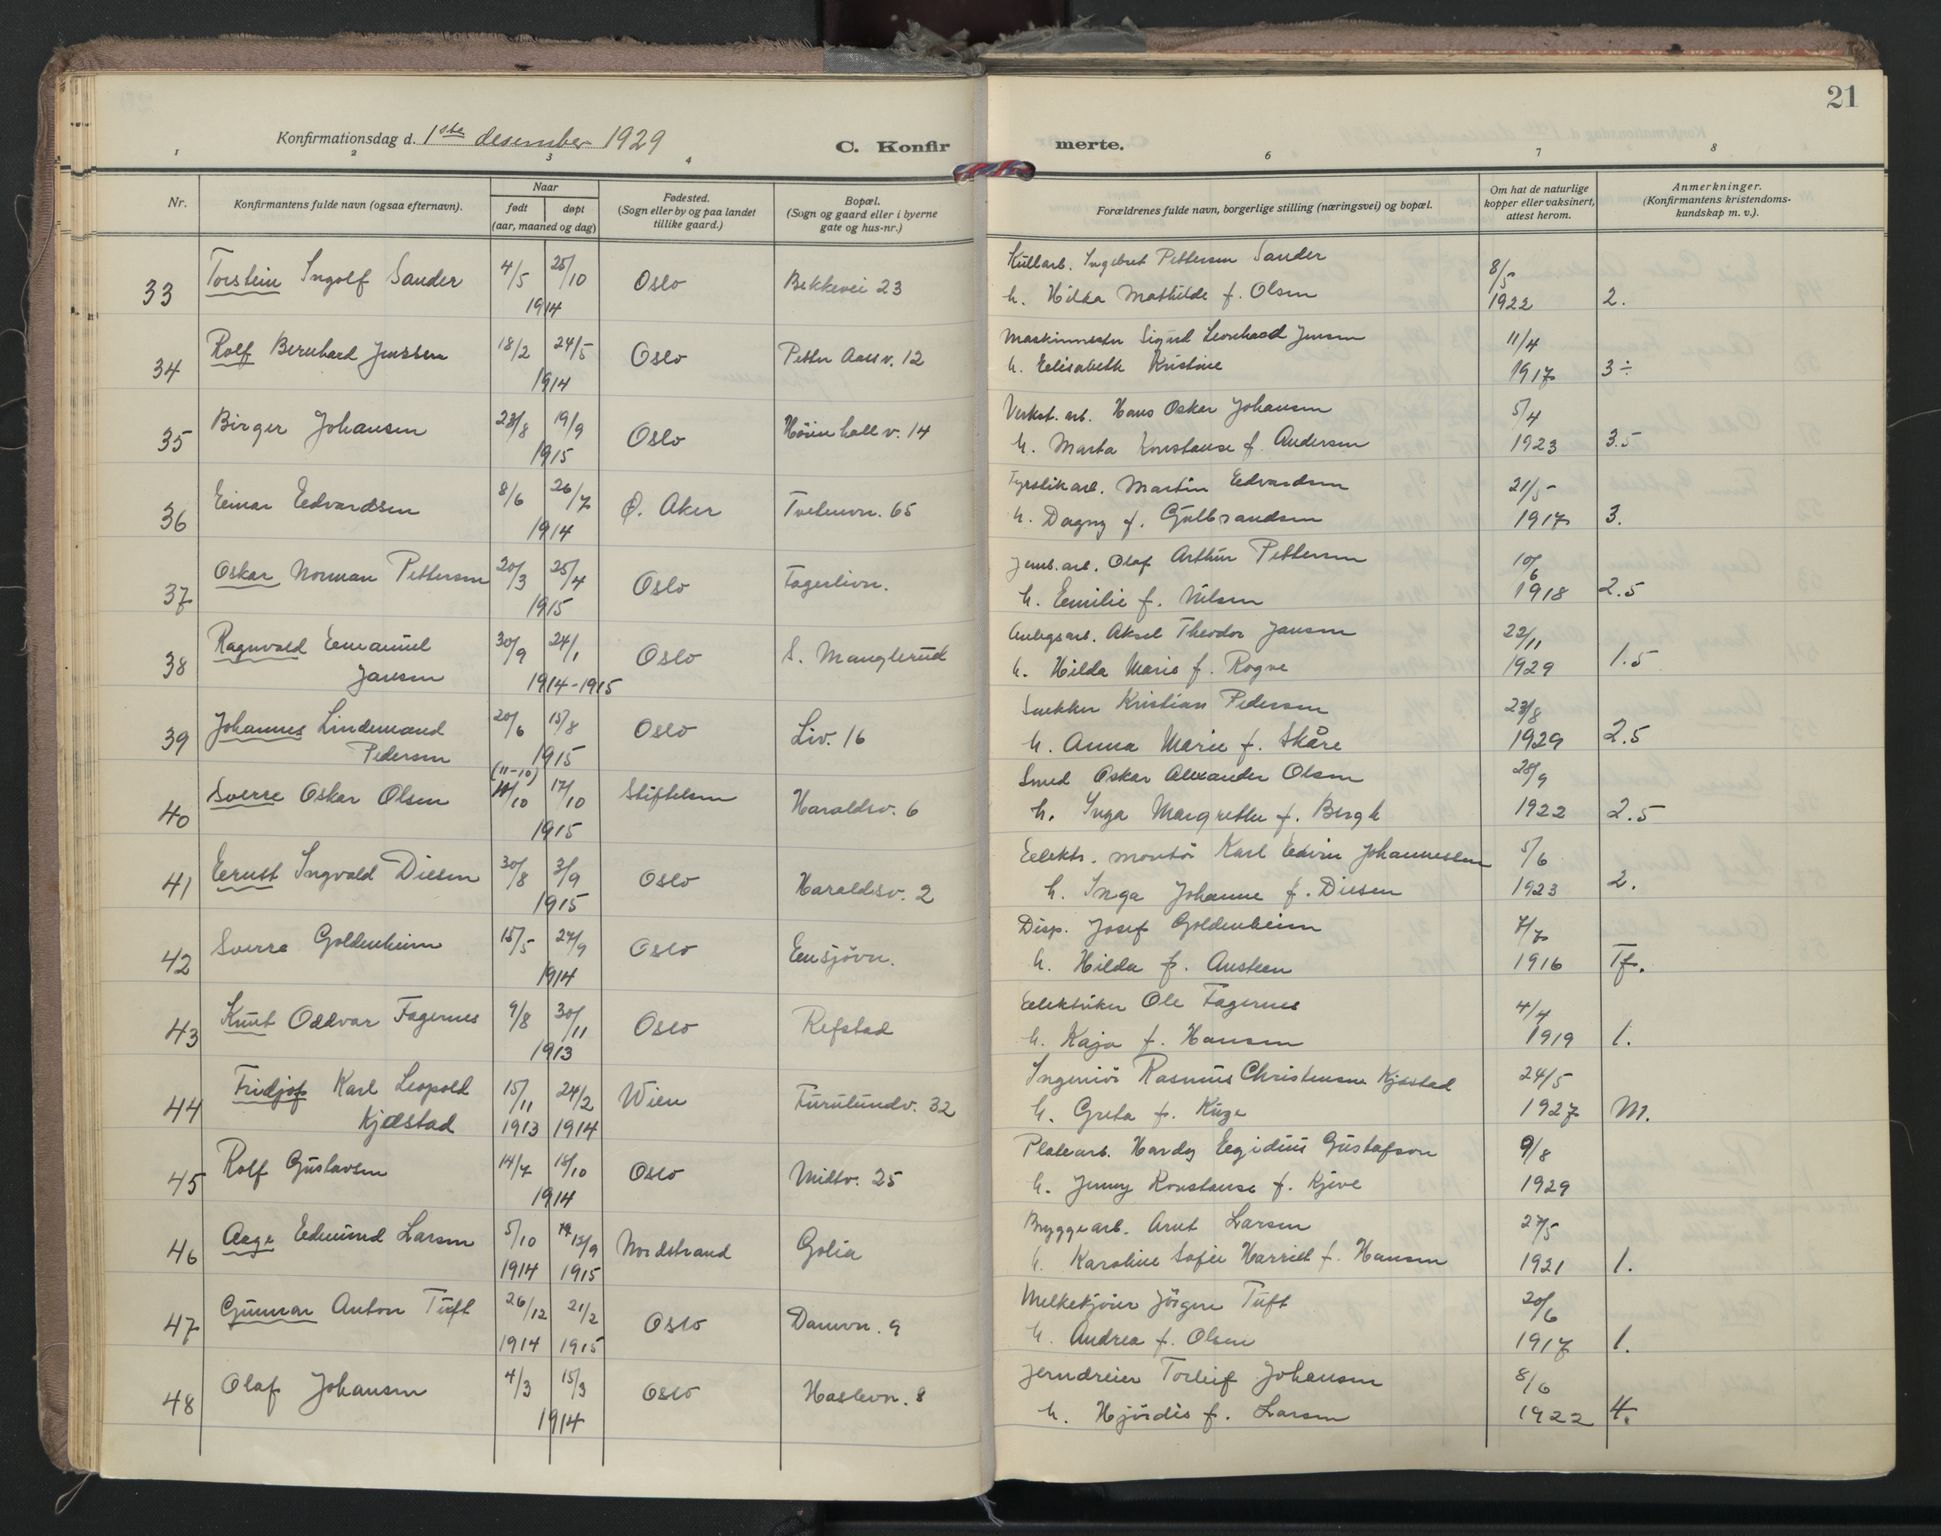 21
Konfirmationsdag d. 1ste desember 1929
C. Konfir
merte.
1 2 3 4 6 7 8
Nr.
Konfirmantens fulde navn (ogsaa efternavn).
Naar
født
døpt
(aar, maaned og dag)
Fødested.
(Sogn eller by og paa landet
tillike gaard.)
Bopæl.
(Sogn og gaard eller i byerne
gate og hus-nr.)
Forældrenes fulde navn, borgerlige stilling (næringsvei) og bopæl.
Om hat de naturlige
kopper eller vaksinert,
attest herom.
Anmerkninger.
(Konfirmantens kristendoms-
kundskap m. v.).
33 Torstein Ingolf Sander 4/5 25/10 1914 Oslo Bekkevei 23
Kullarb. Ingebret Pettersen Sander 8/5
h. Hilda Mathilde f. Olsen 1922 2.
34 Rolf Bernhard Jenssen 18/2 24/5 1914 Oslo Petter Aass v. 12
Maskinmester Sigurd Leonhard Jensen 11/4
h. Elisabeth Kristine 1917 3÷
35 Birger Johansen 23/8 19/9 1915 Oslo Høienhall v. 14
Verkst. arb. Hans Oskar Johansen 5/4
h. Marta Konstanse f. Andersen 1923 3.5
36 Einar Edvardsen 8/6 26/7 1914 Ø. Aker Tvetenvn. 65
Fyrstikarb. Martin Edvardsen 21/5
h. Dagny f. Gulbrandsen 1917 3.
37 Oskar Norman Pettersen 20/3 25/4 1915 Oslo Fagerlivn.
Jernb.arb. Olaf Arthur Pettersen 10/6
h. Emilie f. Nilsen 1918 2.5
38 Ragnvald Emanuel 30/9 24/1 Oslo S. Manglerud
Jansen 1914-1915
Anlegsarb. Aksel Theodor Jansen 22/11
h. Hilda Marie f. Rogne 1929 1.5
39 Johannes Lindemand 20/6 15/8 Oslo Liv. 16
Pedersen 1915
Snekker Kristian Pedersen 23/8
h. Anna Marie f. Skåre 1929 2.5
(11-10)
40 Sverre Oskar Olsen 10/10 17/10 1915 Stiftelsen Haraldsv. 6
Smed Oskar Alexander Olsen 28/9
h. Inga Margrethe f. Bergh 1922 2.5
41 Ernst Ingvald Diesen 30/8 3/9 1915 Oslo Haraldsv. 2
Elektr. montör Karl Edvin Johannessen 5/6
h. Inga Johanne f. Diesen 1923 2.
42 Sverre Goldenheim 15/5 27/9 1914 Oslo Ensjövn.
Disp. Josef Goldenheim 7/7
h. Hilda f. Austeen 1916 Tf.
43 Knut Oddvar Fagernes 9/8 30/11 1913 Oslo Refstad
Elektriker Ole Fagernes 4/4
h. Kaja f. Hansen 1919 1.
44 Fridjof Karl Leopold 15/11 24/2 Wien Furulundv. 32
Kjølstad 1913 1914
Ingeniör Rasmus Christensen Kjøstad 24/5
h. Greta f. Kuze 1927 M.
45 Rolf Gustavsen 14/7 18/10 1914 Oslo Midtv. 25
Platearb. Hardy Egidius Gustafson 9/8
h. Jenny Konstanse f. Kjeve 1929
46 Aage Edmund Larsen 5/10 12/9 Nordstrand Golia
1914 1915
Bryggearb. Arnt Larsen 27/5
h. Karoline Sofie Harriet f. Hansen 1921 1.
47 Gunnar Anton Tuft 26/12 21/2 Oslo Damvn. 9
1914 1915
Melkekjører Jörgen Tuft 20/6
h. Andrea f. Olsen 1917 1.
48 Olaf Johansen 4/3 15/3 1914 Oslo Haslevn. 8
Jerndreier Torleif Johansen 8/6
h. Hjördis f. Larsen 1922 4.